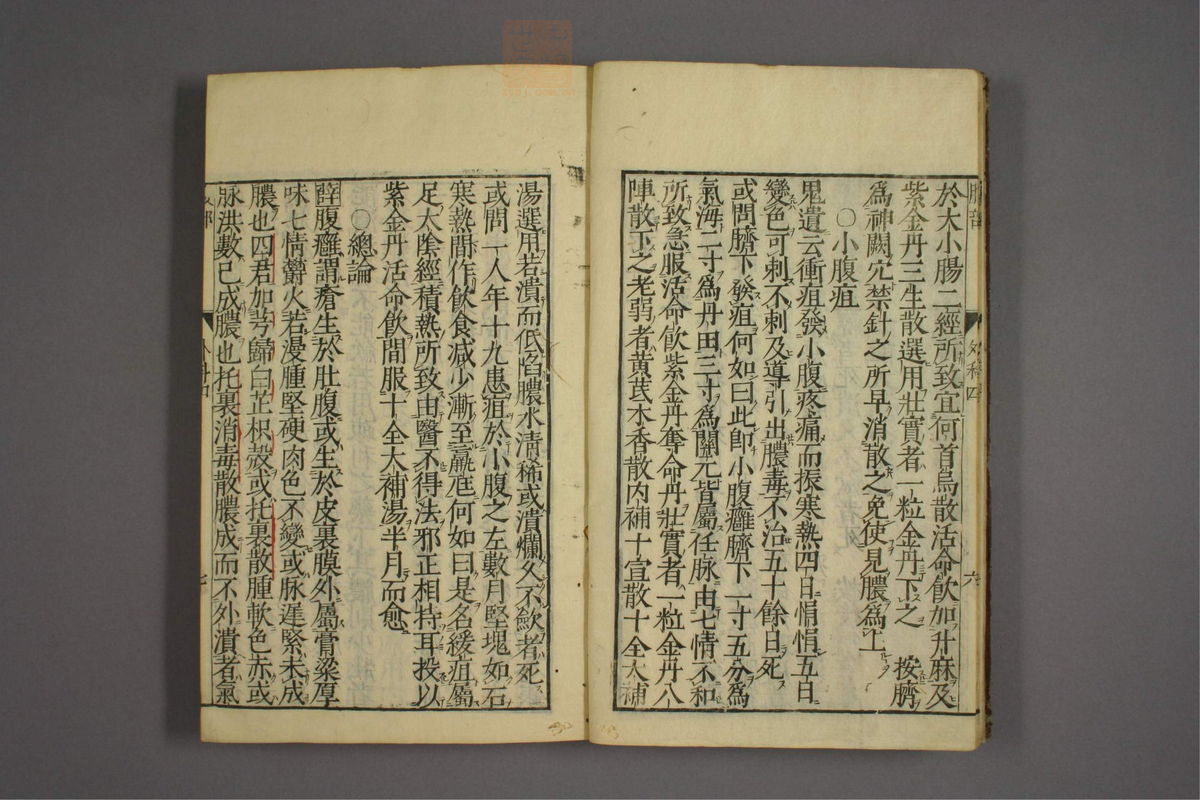 於大小腸二經所致宜何首烏散活命飲加升麻及
紫金丹三生散選用壯實者一粒金丹下之 按臍
爲神闕穴禁針之所早消散之免使見膿爲上
○小腹疽
鬼遺云衝疽發小腹疼痛而振寒熱四日悁悁五日
變色可刺不刺及導引出膿毒不治五十餘日死
或問臍下發疽何如曰此即小腹癰臍下一寸五分爲
氣海二寸爲丹田三寸爲關元皆屬任脉由七情不和
所致急服活命飲紫金丹奪命丹壯實者一粒金丹八
陣散下之老弱者黃芪木香散内補十宣散十全大補
湯選用若潰而低陷膿水清稀或潰爛久不歛者死
或問一人年十九患疽於小腹之左數月堅塊如石
寒熱間作飲食減少漸至羸尫何如曰是名緩疽屬
足太陰經積熱所致由醫不得法邪正相持耳投以
紫金丹活命飲間服十全大補湯半月而愈
○總論
薛腹癰謂瘡生於肚腹或生於皮裏膜外屬膏粱厚
味七情欝火若漫腫堅硬肉色不變或脉遲緊未成
膿也四君加芎歸白芷枳殼或托裏散腫軟色赤或
脉洪數已成膿也托裏消毒散膿成而不外潰者氣